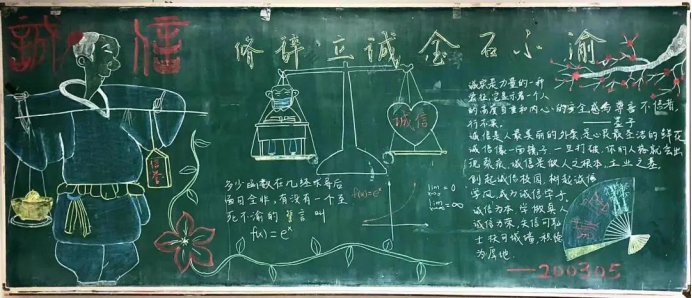 誠信
修辞立诚金石不渝
诚信
信誉
诚实是力量的一种
象征,它显示着一个人
的高度自重和内心的安全感与尊严
不信者,
行不果。
——墨子
诚信是人最美丽的外衣,是心灵最圣洁的鲜花
诚信像一面镜子,一旦打破,你的人格就会出
现裂痕。诚信是做人之根本,立业之基。
创起诚信校园,树起诚信
学风,成为诚信学子,
诚信为本,学做真人
诚信为荣,失信可耻
多少函数在几经求导后
面目全非,有没有一个至
死不渝的誓言叫
f(x)=eˣ
f(x)=eˣ
lim = 0
x→-∞
lim = ∞
x→∞
——200305